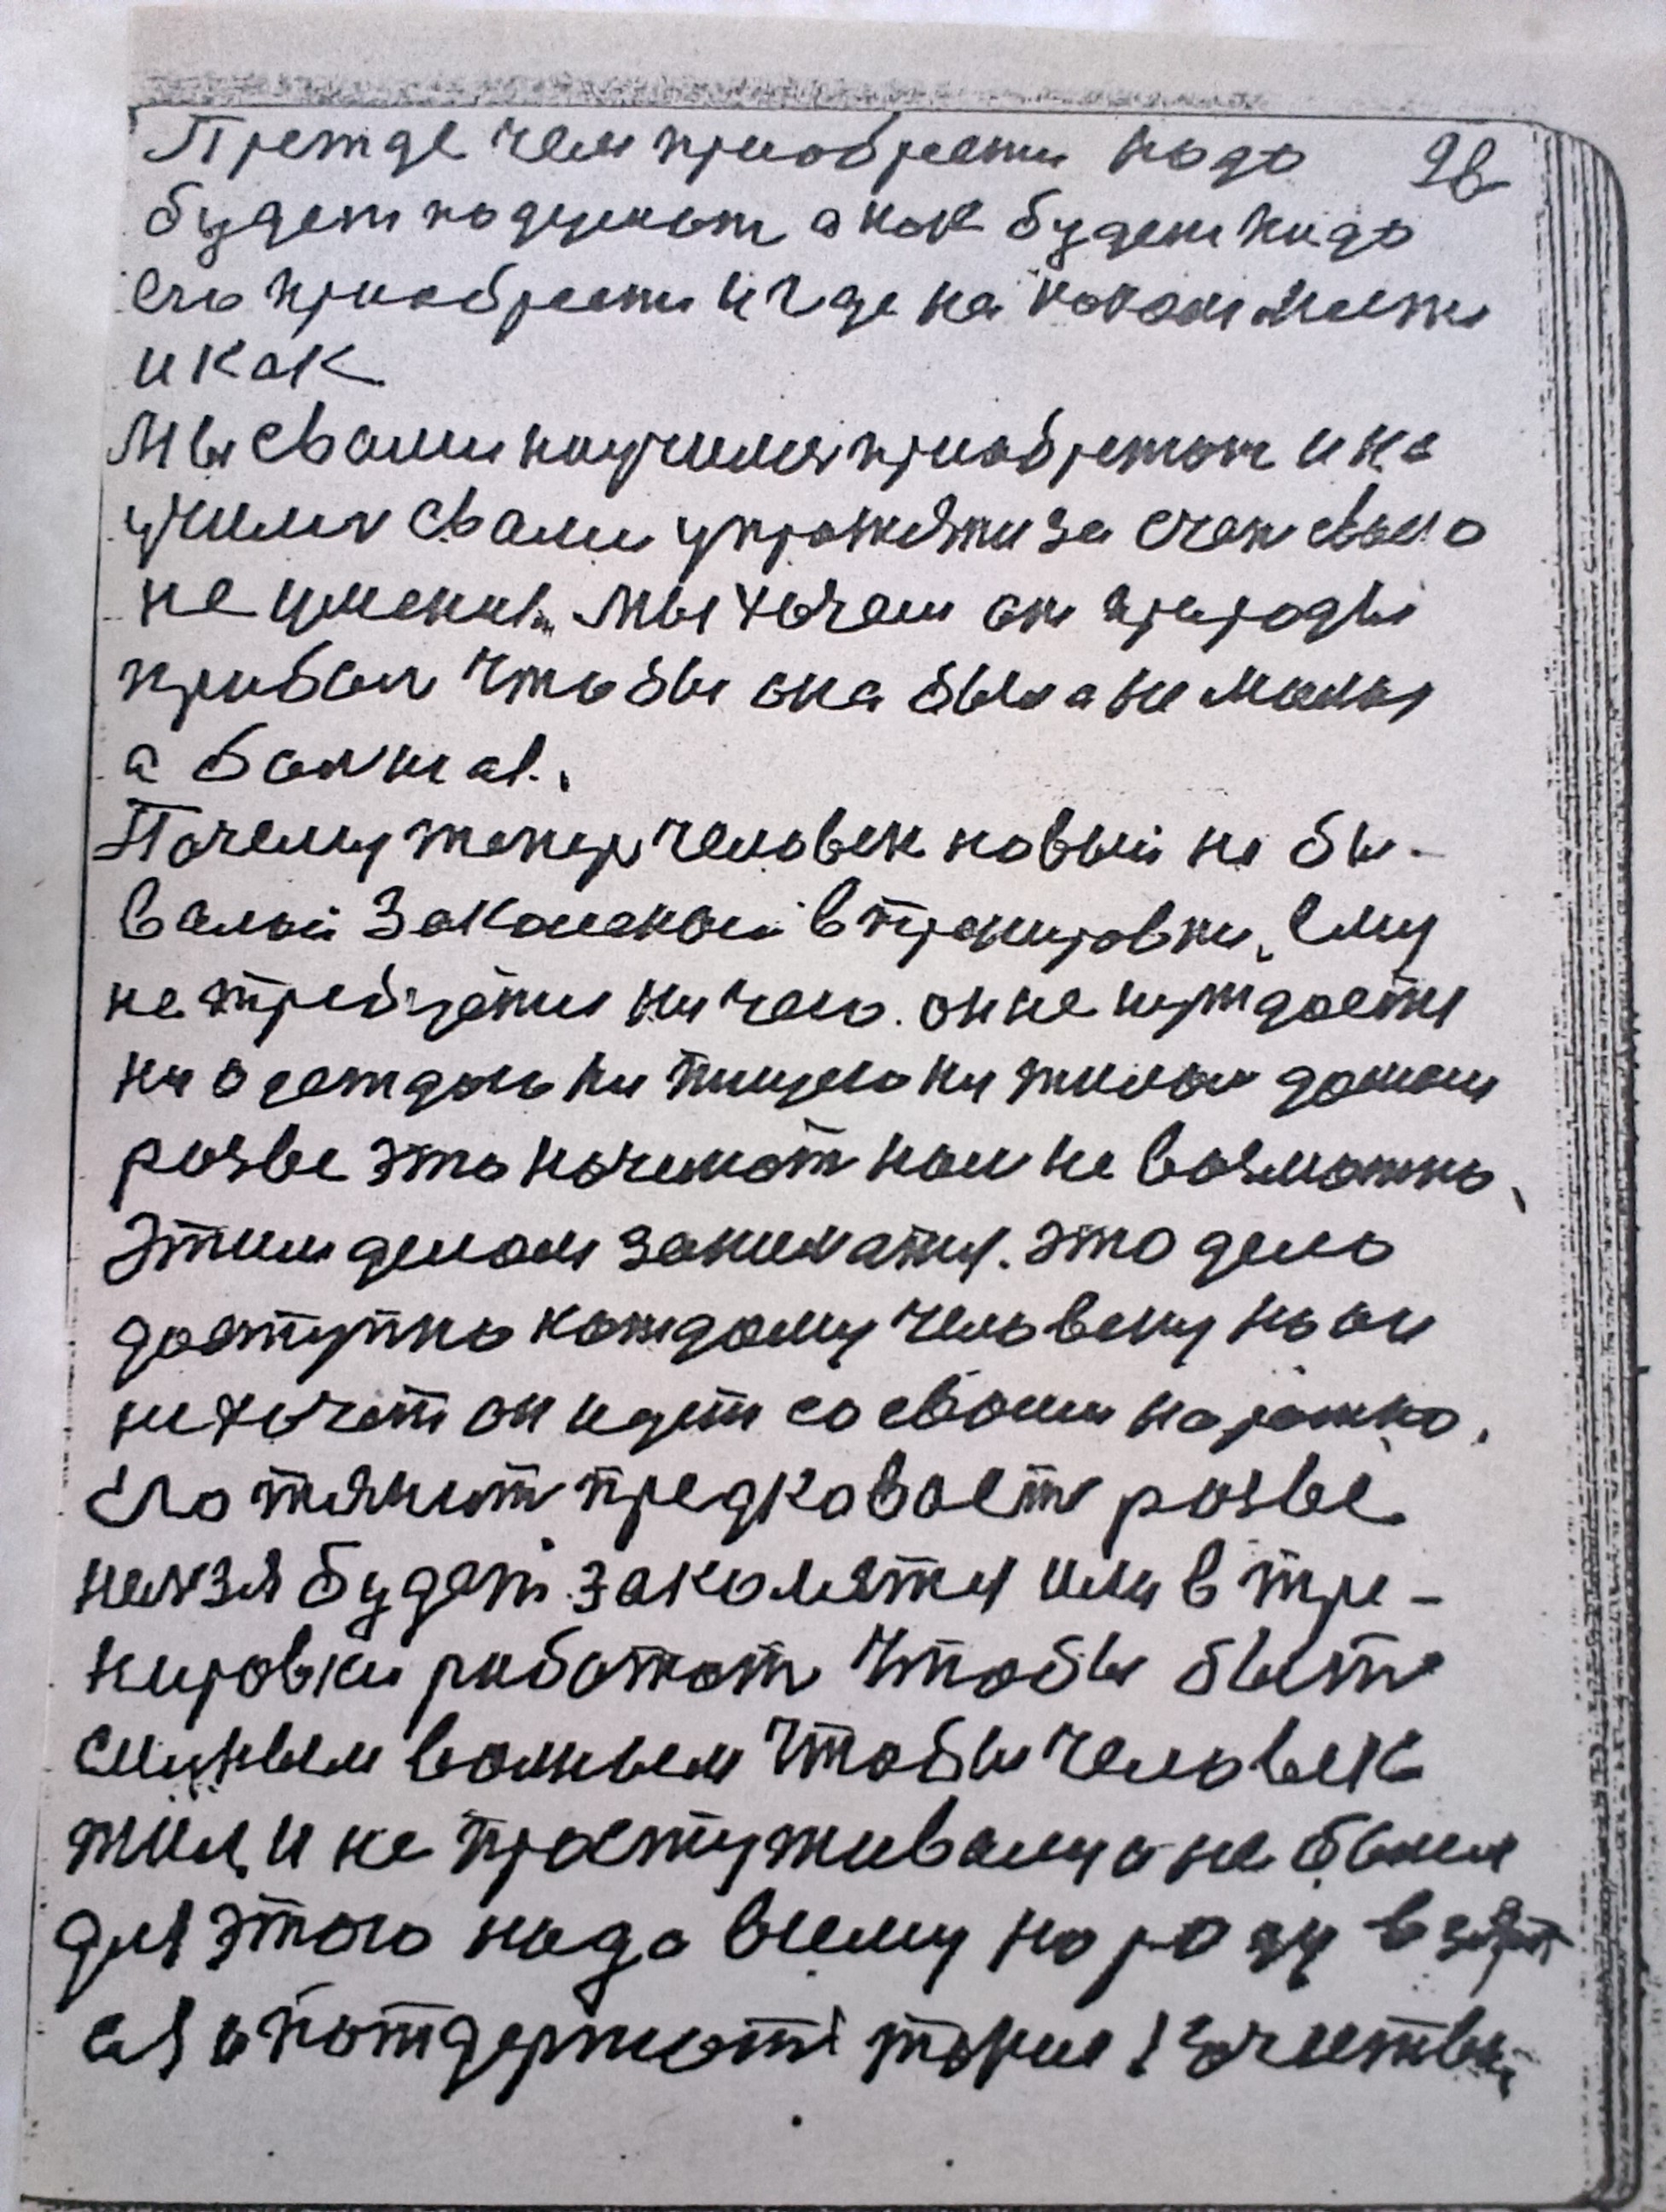 Прежде чем приобрести надо 26
будет подумат а как будет надо
его приобрести и где на каком месте
и как
Мы свами научились приобретат и на
училис свами упражятти за счет свого
не умения. Мы хочем от природы
прибыл чтобы она была не малая
а болшая.
Почему тепер человек новый не бы-
валый Закаленый в тренировки, Ему
не требуется ничего. он не нуждается
ни одеждою ни пищею ни жилым домом
розве это начинат нам не возможно,
Этим делом заниматся. это дело
доступно каждому человеку но он
не хочет он идет со своим на ряшко.
его тянит предковает розве
нелзя будет закалятся или в тре-
нировки работат чтобы быт
силным волным чтобы человек
жил, и не простуживался не болел
для этого надо всему народу взят
ся и потдержат такие качества